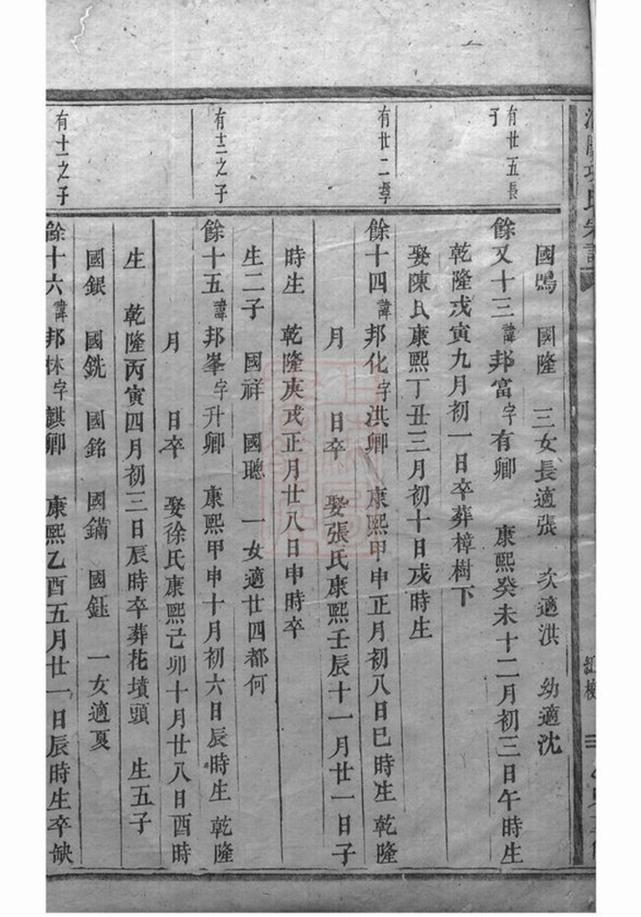 國鴫 國隆 三女長適張 次適洪 幼適沈
有廿五長子
餘又十三諱邦富字有卿 康熙癸未十二月初三日午時生
乾隆戊寅九月初一日卒葬樟樹下
娶陳氏康熙丁丑三月初十日戌時生
有廿二季
餘十四諱邦化字洪卿 康熙甲申正月初八日巳時生 乾隆
月 日卒 娶張氏康熙壬辰十一月廿一日子
時生 乾隆庚戌正月廿八日申時卒
生二子 國祥 國聰 一女適廿四都何
有十三之子
餘十五諱邦峯字升卿 康熙甲申十月初六日辰時生 乾隆
月 日卒 娶徐氏康熙己卯十月廿八日酉時
生 乾隆丙寅四月初三日辰時卒葬花墳頭 生五子
國銀 國銑 國銘 國鏋 國鈺 一女適夏
有十一之子
餘十六諱邦林字麒卿 康熙乙酉五月廿一日辰時生卒缺